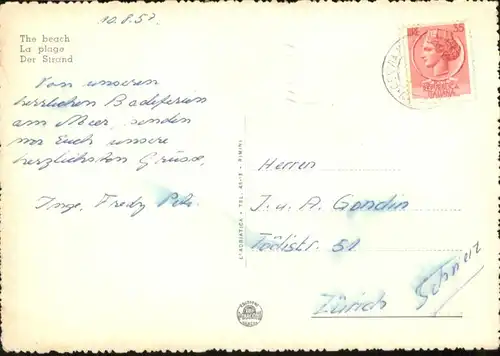 10.8.57
The beach
La plage
Der Strand
Von unseren
herrlichen Badeferien
am Meer, senden
wir Euch unsere
herzlichsten Grüsse,
Inge, Fredy
LIRE 35
REPUBBLICA
ITALIANA
L'ADRIATICA - TEL. - RIMINI
Herren
J. u. A. Gondin
Tödistr. 51
Zürich
Schweiz